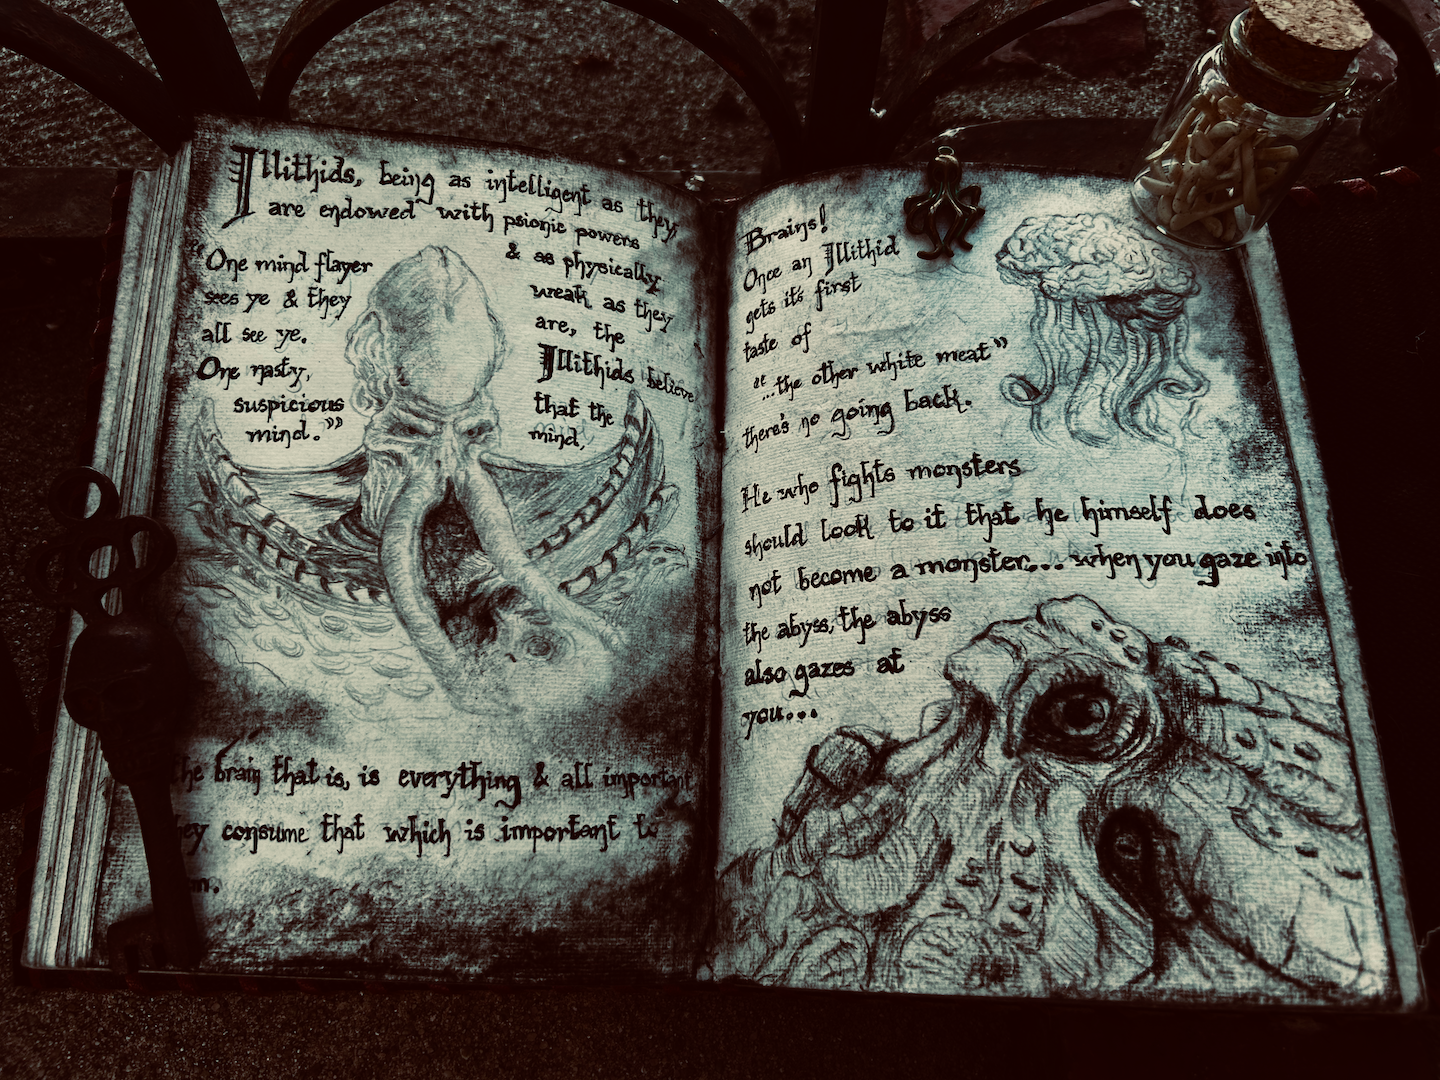 Illithids, being as intelligent as they
are endowed with psionic powers
& as physically
weak as they
are, the
Illithids believe
that the
mind,
“One mind flayer
sees ye & they
all see ye.
One nasty,
suspicious
mind.””
the brain that is, is everything & all important
they consume that which is important to
Brains!
Once an Illithid
gets it's first
taste of
“...the other white meat”
there's no going back.
He who fights monsters
should look to it that he himself does
not become a monster... when you gaze into
the abyss, the abyss
also gazes at
you...